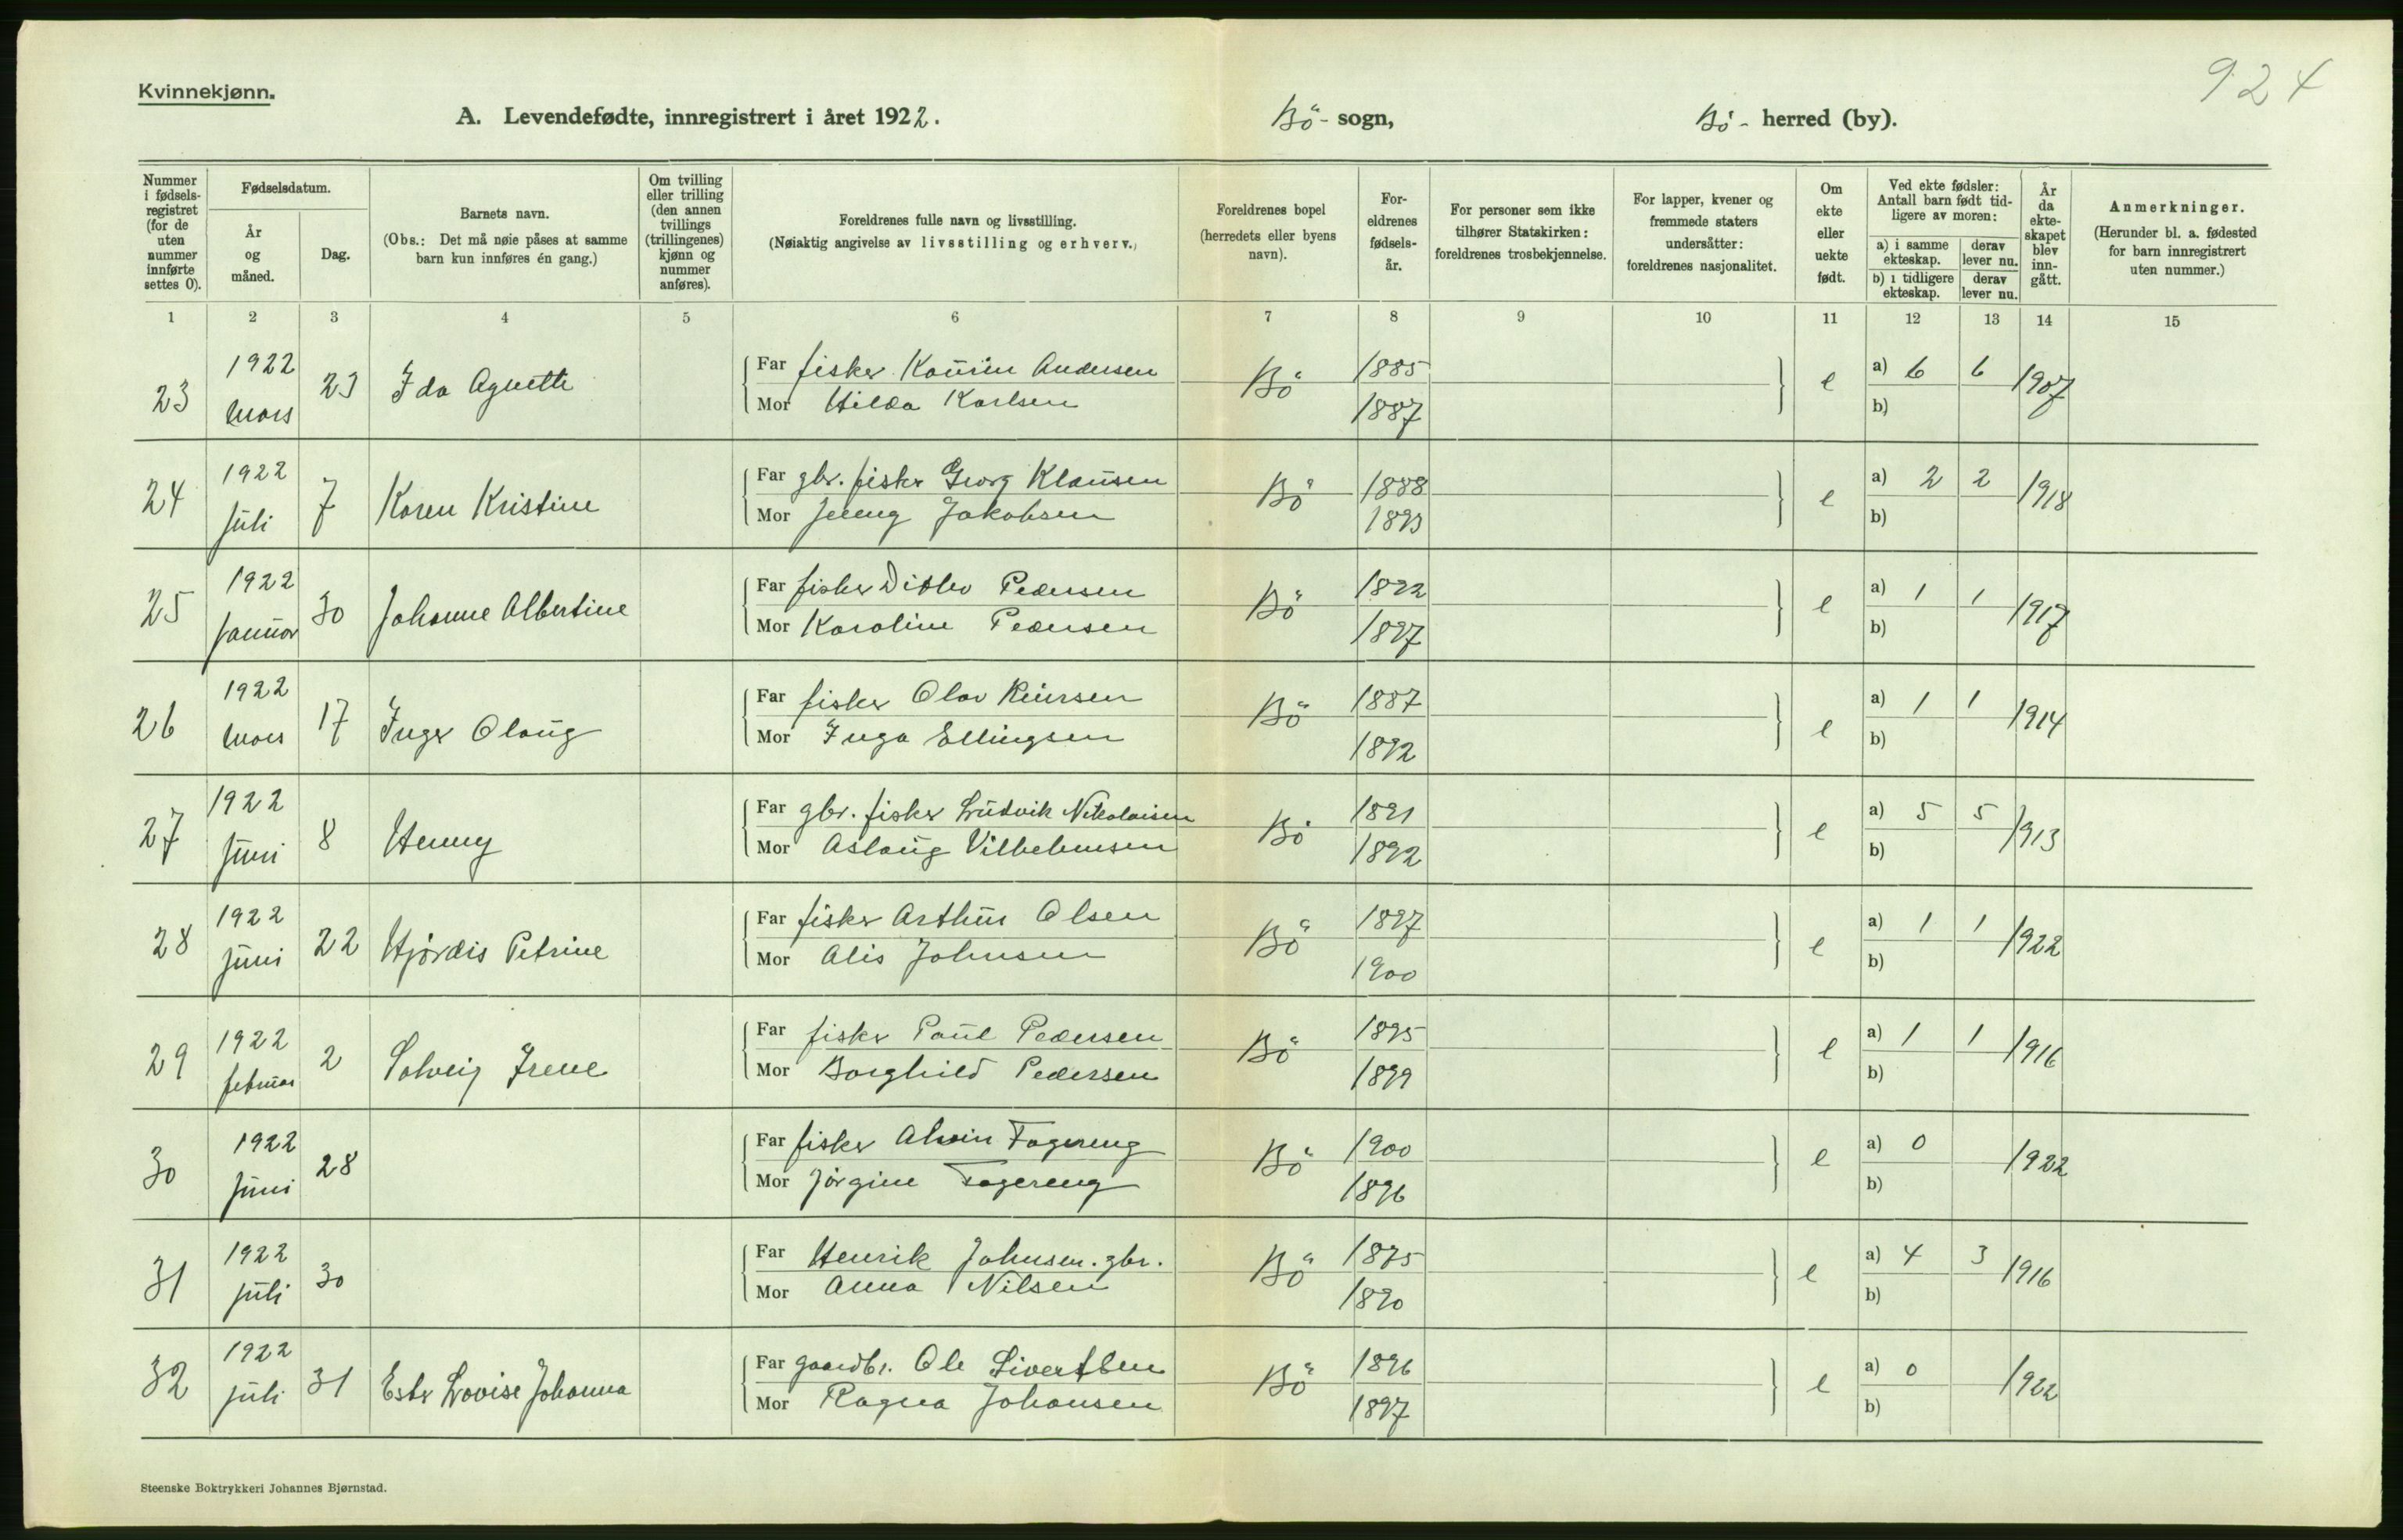 924
Kvinnekjønn.
A. Levendefødte, innregistrert i året 1922. Bö- sogn, Bö- herred (by).
Nummer i fødsels-registret (for de uten nummer innførte settes 0).
Fødselsdatum.
År og måned.
Dag.
Barnets navn.
(Obs.: Det må nøie påses at samme barn kun innføres én gang.)
Om tvilling eller trilling (den annen tvillings (trillingenes) kjønn og nummer anføres).
Foreldrenes fulle navn og livsstilling.
(Nøiaktig angivelse av livsstilling og erhverv.)
Foreldrenes bopel (herredets eller byens navn).
For-eldrenes fødsels-år.
For personer som ikke tilhører Statskirken: foreldrenes trosbekjennelse.
For lapper, kvener og fremmede staters undersåtter: foreldrenes nasjonalitet.
Om ekte eller uekte født.
Ved ekte fødsler: Antall barn født tid-ligere av moren:
a) i samme ekteskap. derav lever nu.
b) i tidligere ekteskap. derav lever nu.
År da ekte-skapet blev inn-gått.
Anmerkninger.
(Herunder bl. a. fødested for barn innregistrert uten nummer.)
1 2 3 4 5 6 7 8 9 10 11 12 13 14 15
23 1922 mars 23 Ida Agnethe Far fisker Andersen Bö 1885 e a) 6 6 1907
Mor Hilda Karlsen 1887 b)
24 1922 juli 7 Karen Kristine Far gbr. fisker Georg Klaüsen Bö 1888 e a) 2 2 1918
Mor Jenny Jakobsen 1893 b)
25 1922 januar 30 Johanne Albertine Far fisker Ditlev Pedersen Bö 1892 e a) 1 1 1917
Mor Karoline Pedersen 1897 b)
26 1922 mars 17 Inger Olaüg Far fisker Olav Bö 1887 e a) 1 1 1914
Mor Inga Ellingsen 1892 b)
27 1922 juni 8 Henny Far gbr. fisker Lüdvik Nikolaisen Bö 1891 e a) 5 5 1913
Mor Aslaüg Vilhelmsen 1892 b)
28 1922 juni 22 Hjördis Petrine Far fisker Arthür Olsen Bö 1897 e a) 1 1 1922
Mor Alis Johnsen 1900 b)
29 1922 februar 2 Solveig Irene Far fisker Paül Pedersen Bö 1895 e a) 1 1 1916
Mor Borghild Pedersen 1899 b)
30 1922 juni 28 Far fisker Alvin Fagereng Bö 1900 e a) 0 1922
Mor Jörgine Fagereng 1896 b)
31 1922 juli 30 Far Henrik Johnsen. gbr. Bö 1875 e a) 4 3 1916
Mor Anna Nilsen 1890 b)
32 1922 juli 31 Ester Lovise Johanna Far gaardbr. Ole Sivertsen Bö 1896 e a) 0 1922
Mor Ragna Johansen 1897 b)
Steenske Boktrykkeri Johannes Bjørnstad.